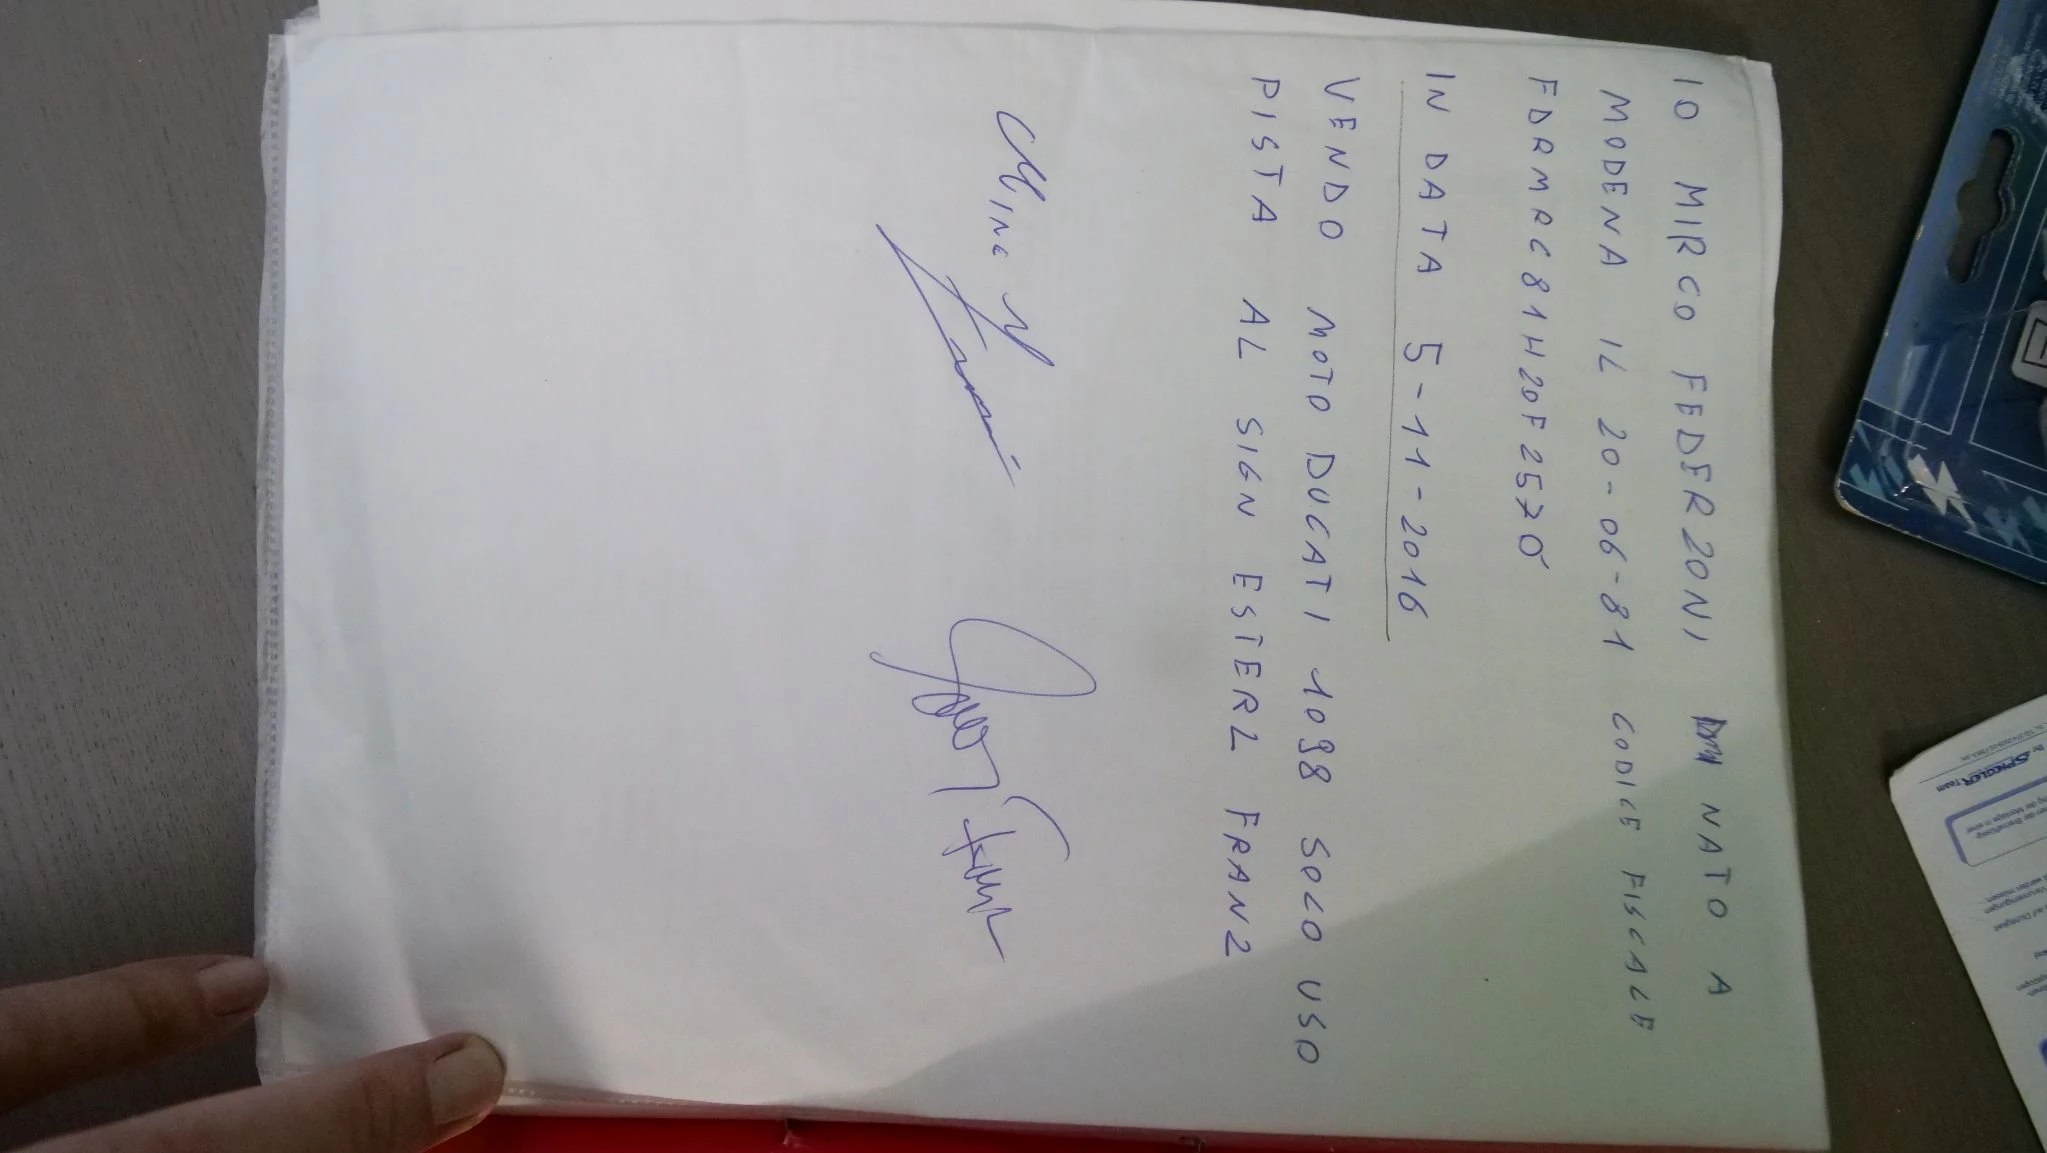 IO MIRCO FEDERZONI NATO A
MODENA IL 20-06-81 CODICE FISCALE
FDRMRC81H20F257O
IN DATA 5-11-2016
VENDO MOTO DUCATI 1098 SOLO USO
PISTA AL SIGN ESTERL FRANZ
SPIEGLER Team